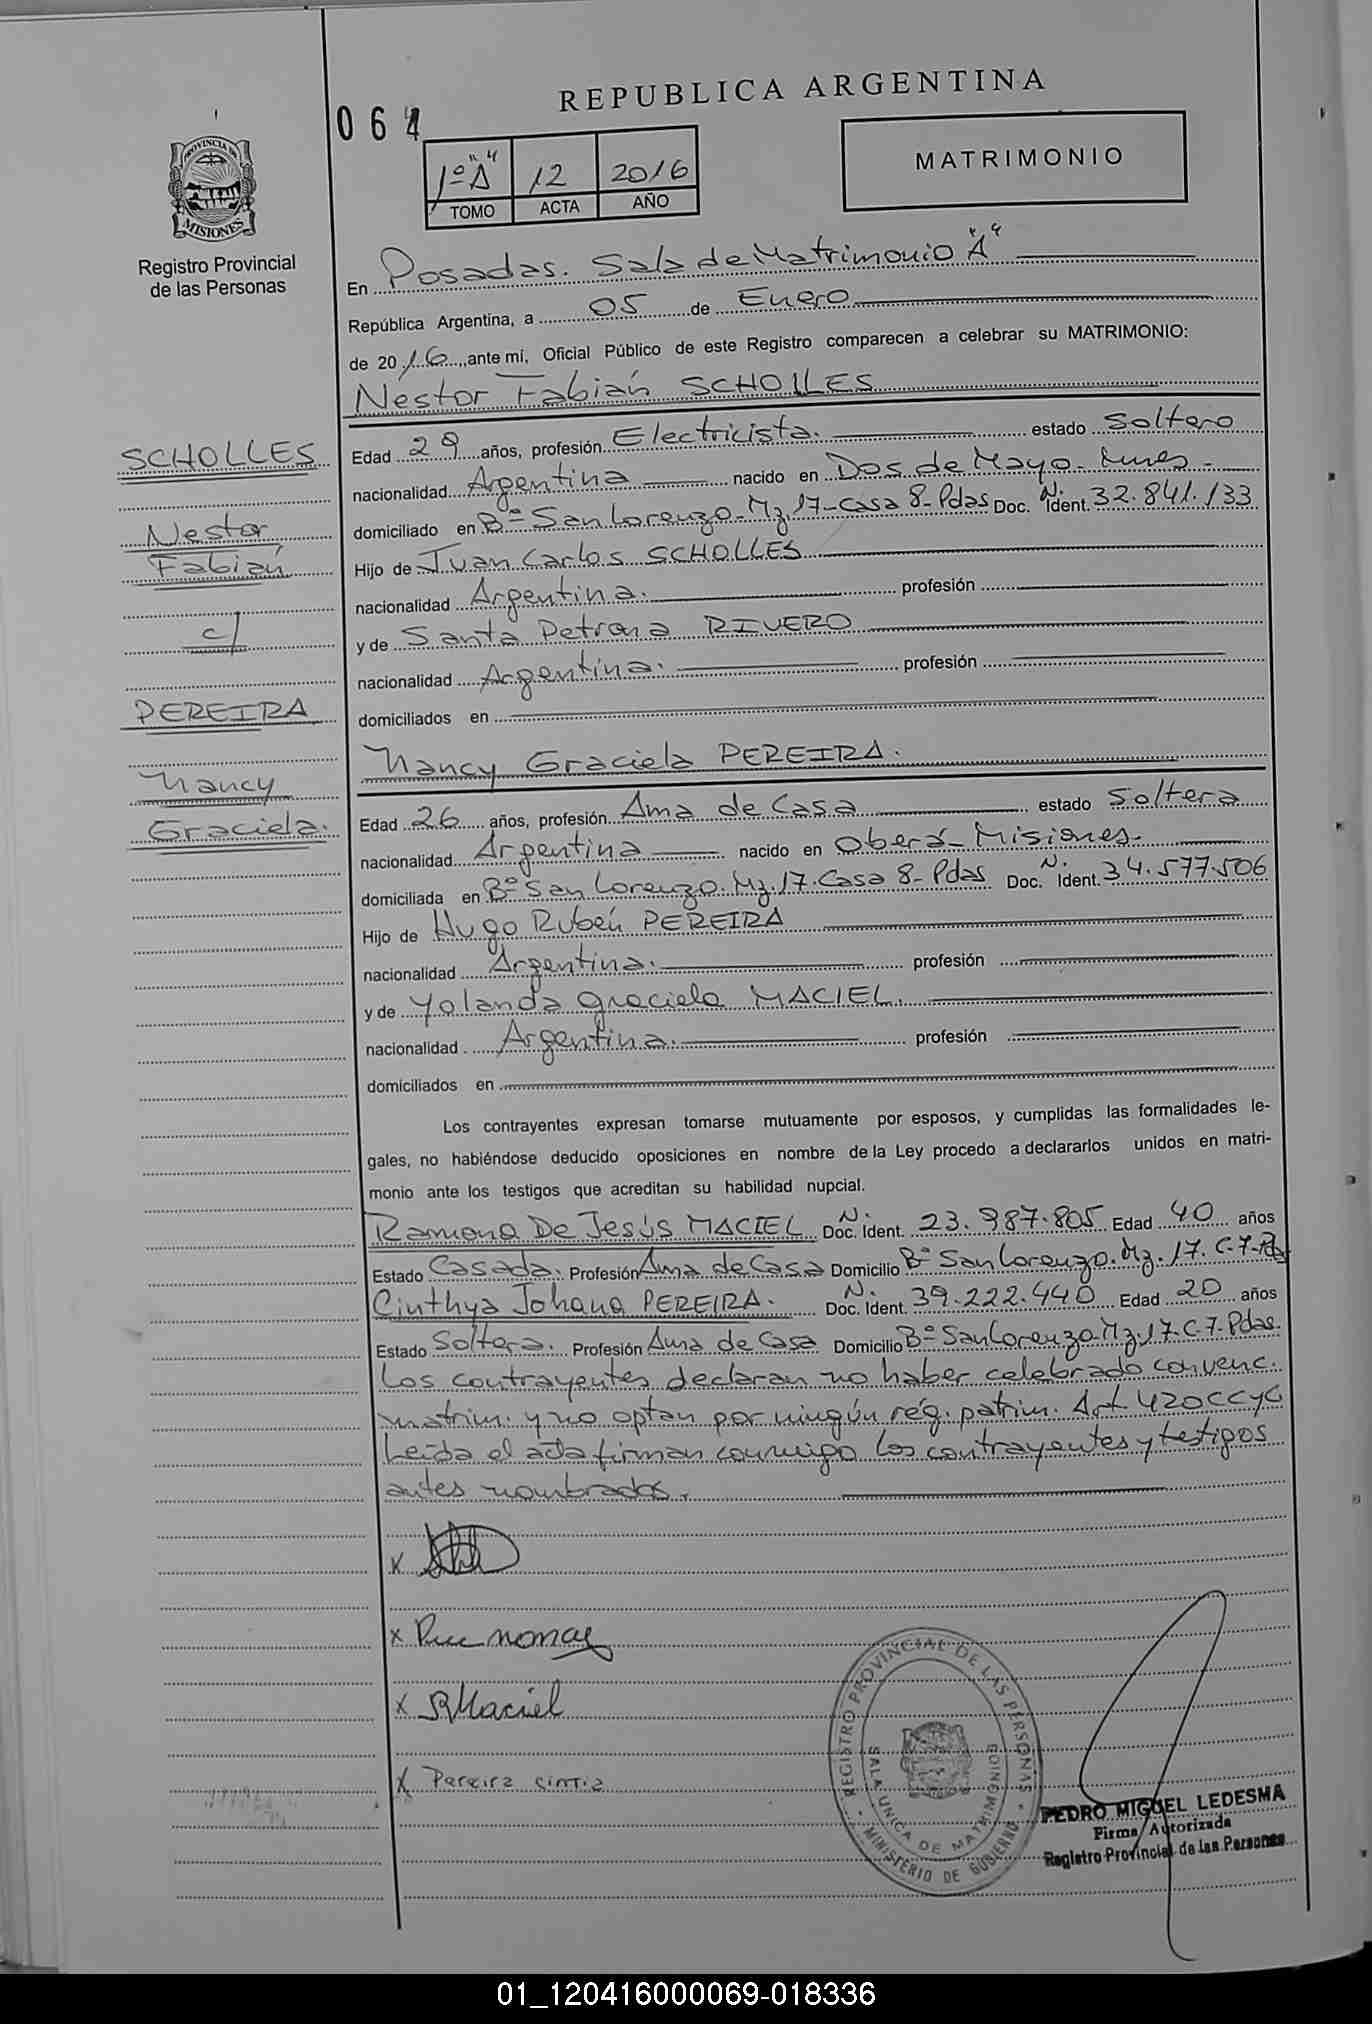 REPUBLICA ARGENTINA
064
1º "A" 12 2016
TOMO ACTA AÑO
MATRIMONIO
PROVINCIA DE
MISIONES
Registro Provincial
de las Personas
En Posadas. Sala de Matrimonio "A"
República Argentina, a 05 de Enero
de 2016, ante mi, Oficial Público de este Registro comparecen a celebrar su MATRIMONIO:
Nestor Fabián SCHOLLES
SCHOLLES
Nestor
Fabián
c/
PEREIRA
Nancy
Graciela.
Edad 29 años, profesión Electricista. estado Soltero
nacionalidad Argentina nacido en Dos de Mayo - Mnes -
domiciliado en Bº San Lorenzo - Mz. 17 - Casa 8 - Pdas Doc. N. Ident. 32.841.133
Hijo de Juan Carlos SCHOLLES
nacionalidad Argentina. profesión
y de Santa Petrona RIVERO
nacionalidad Argentina. profesión
domiciliados en
Nancy Graciela PEREIRA.
Edad 26 años, profesión Ama de Casa estado Soltera
nacionalidad Argentina nacido en Oberá - Misiones.
domiciliada en Bº San Lorenzo. Mz. 17. Casa 8 - Pdas Doc. N. Ident. 34.577.506
Hijo de Hugo Rubén PEREIRA
nacionalidad Argentina. profesión
y de Yolanda Graciela MACIEL.
nacionalidad Argentina. profesión
domiciliados en
Los contrayentes expresan tomarse mutuamente por esposos, y cumplidas las formalidades le-
gales, no habiéndose deducido oposiciones en nombre de la Ley procedo a declararlos unidos en matri-
monio ante los testigos que acreditan su habilidad nupcial.
Ramona De Jesús MACIEL Doc. N. Ident. 23.987.805 Edad 40 años
Estado Casada. Profesión Ama de Casa Domicilio Bº San Lorenzo. Mz. 17. C-7-Pdas
Cinthya Johana PEREIRA. Doc. N. Ident. 39.222.440 Edad 20 años
Estado Soltera. Profesión Ama de Casa Domicilio Bº San Lorenzo. Mz. 17. C-7. Pdas.
Los contrayentes declaran no haber celebrado convenc.
matrim. y no optan por ningún rég. patrim. Art 420 CCyC
Leída el acta firman conmigo los contrayentes y testigos
antes nombrados.
x
x
x RMaciel
x Pereira Cintia
REGISTRO PROVINCIAL DE LAS PERSONAS
SALA UNICA DE MATRIMONIO
MINISTERIO DE GOBIERNO
PEDRO MIGUEL LEDESMA
Firma Autorizada
Registro Provincial de las Personas
01_120416000069-018336